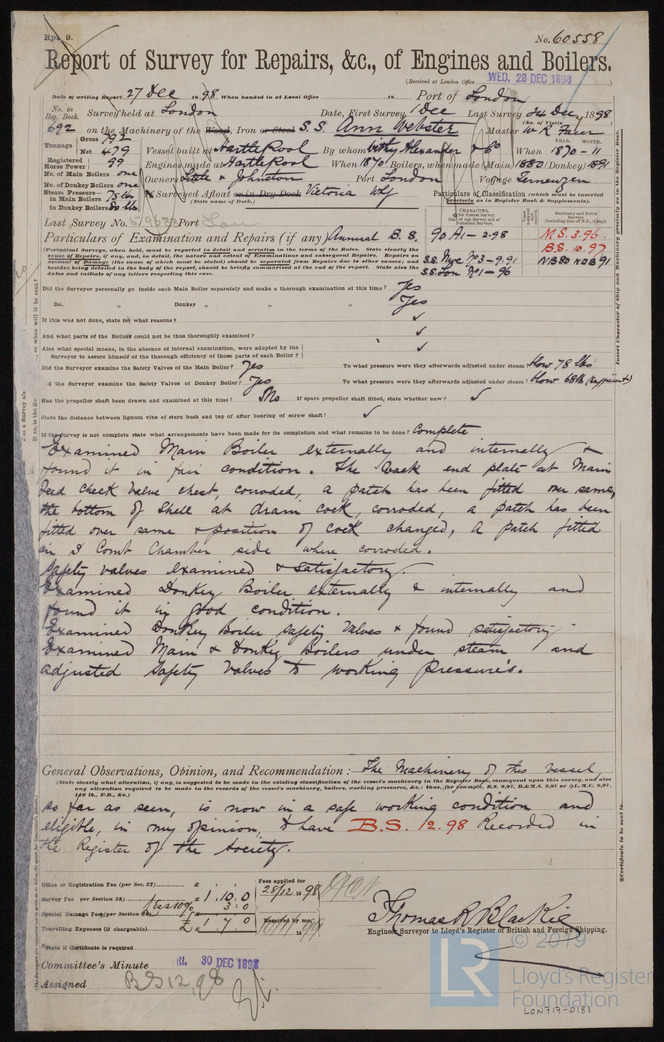 Rpt. 9.
No. 60558
Report of Survey for Repairs, &c., of Engines and Boilers.
(Received at London Office WED. 28 DEC 1898
Date of writing Report 27 Dec 1898 When handed in at Local Office 18 Port of London
No. in Reg. Book. Survey held at London Date, First Survey Dec Last Survey 24 Dec 1898
(No. of Visits
692 on the Machinery of the Wood, Iron or Steel S.S. Ann Webster Master W. R.
Tonnage Gross 792 Net 479 Vessel built at Hartlepool By whom Withy Alexander & Co When 1870-11
Registered Horse Power 99 Engines made at Hartlepool When 1870 Boilers, when made (Main) 1880 (Donkey) 1891
No. of Main Boilers one Owners Little & Johnston Port London Voyage
No. of Donkey Boilers one
Steam Pressure in Main Boilers 75 lbs If Surveyed Afloat or in Dry Dock Victoria Whf
(State name of Dock.)
in Donkey Boilers
Particulars of Classification (which must be inserted precisely as in Register Book & Supplements).
Last Survey No. Port
Particulars of Examination and Repairs (if any) Annual B.S. 90 A1 - 2.98 M.S. 3.96
B.S. 10.97
S.S. Nwc No 3 - 9.91 NB80 NDB91
S.S. Lon No 1 - 96
Did the Surveyor personally go inside each Main Boiler separately and make a thorough examination at this time? Yes
Do. " Donkey " " " " " Yes
If this was not done, state for what reasons? ✓
And what parts of the Boilers could not be thus thoroughly examined? ✓
Also what special means, in the absence of internal examination, were adopted by the
Surveyor to assure himself of the thorough efficiency of those parts of each Boiler? ✓
Did the Surveyor examine the Safety Valves of the Main Boiler? Yes To what pressure were they afterwards adjusted under steam? blow 78 lbs
Did the Surveyor examine the Safety Valves of Donkey Boiler? Yes To what pressure were they afterwards adjusted under steam? blow 68 lbs
Has the propeller shaft been drawn and examined at this time? No If spare propeller shaft fitted, state whether new? ✓
State the distance between lignum vitæ of stern bush and top of after bearing of screw shaft? ✓
If the Survey is not complete state what arrangements have been made for its completion and what remains to be done? Complete
Examined Main Boiler externally and internally &
found it in fair condition. The back end plate at Main
feed check valve chest, corroded, a patch has been fitted over same,
the bottom of shell at drain cock, corroded, a patch has been
fitted over same & position of cock changed, a patch fitted
in S Comb Chamber side where corroded.
Safety valves examined & satisfactory.
Examined Donkey Boiler externally & internally and
found it in good condition.
Examined Donkey Boiler safety valves & found satisfactory
Examined Main & Donkey Boilers under steam and
adjusted safety valves to working pressures.
General Observations, Opinion, and Recommendation: The Machinery of this vessel,
(State clearly what alteration, if any, is suggested to be made in the existing classification of the vessel's machinery in the Register Book, consequent upon this survey, and also
any alteration required to be made in the records of the vessel's machinery, boilers, working pressures, &c.: thus, for example, B.S. 9,97, B.&M.S. 9,97 or L.M.C. 9,97,
so far as seen, is now in a safe working condition and
eligible, in my opinion, to have B.S. 12.98 Recorded in
the Register of the Society.
Office or Registration Fee (per Sec. 27) £ Fees applied for
Survey Fee (per Section 28) £ 1.10.0 28/12 1898
Special Damage Fee (per Section 28) less 10% 3.0
Travelling Expenses (if chargeable) £ 1.7.0 Received by me,
Thomas R Blackie
Engineer Surveyor to Lloyd's Register of British and Foreign Shipping.
State if Certificate is required
Committee's Minute FRI. 30 DEC 1898
Assigned BS 12,98
LR © 2019
Lloyd's Register
Foundation
LON717-0181